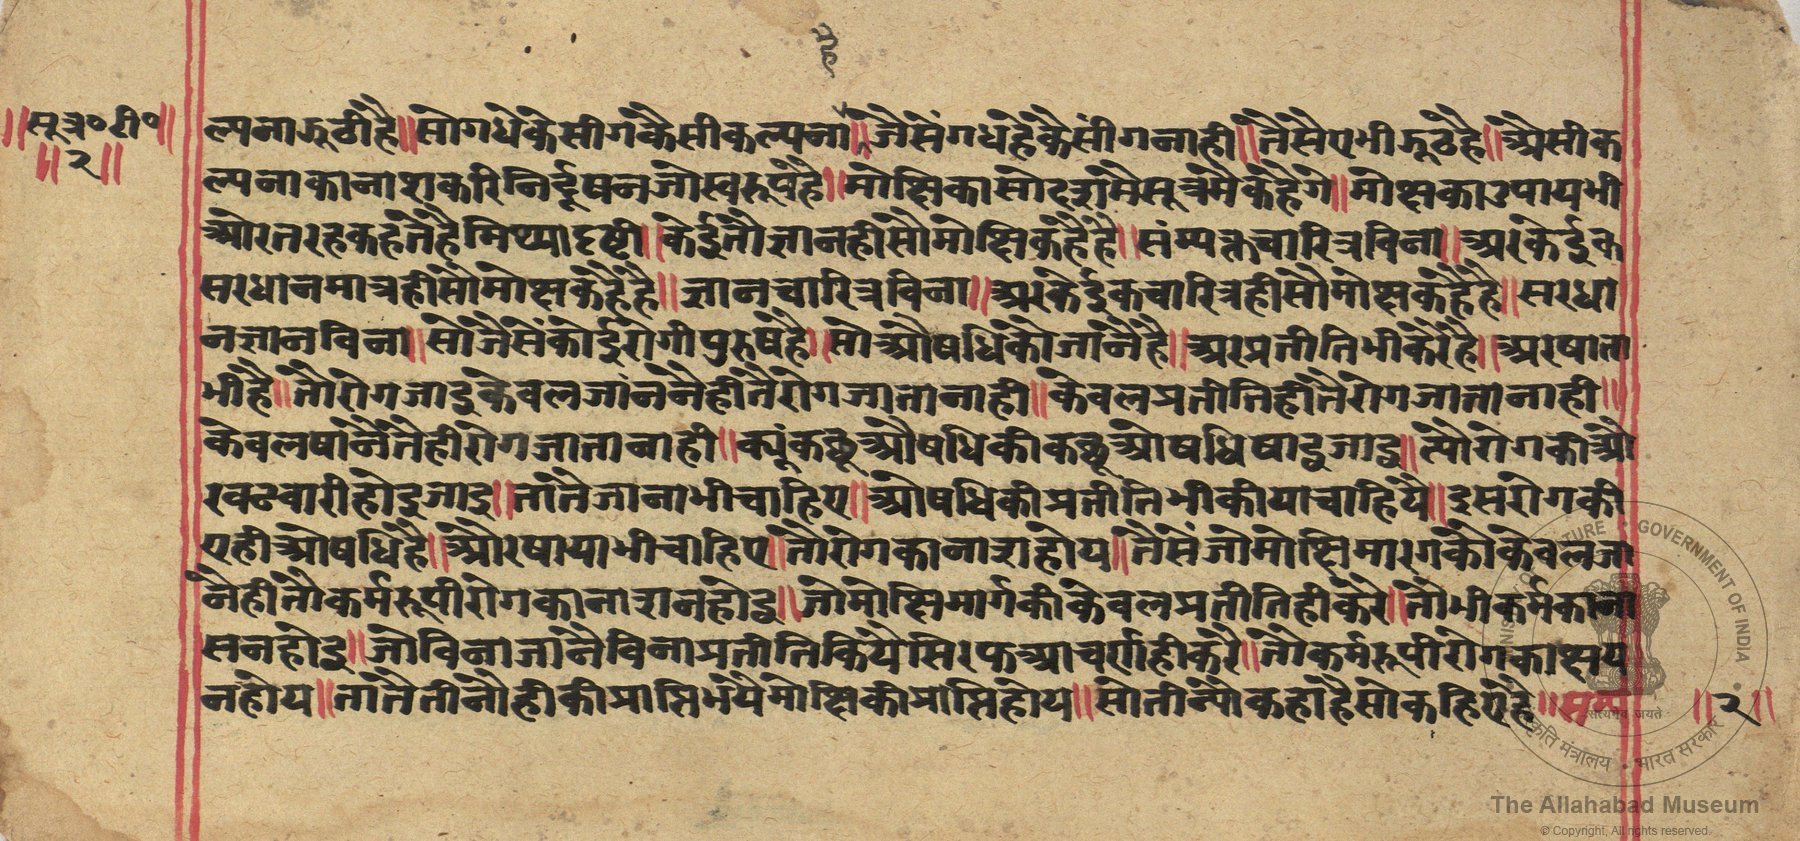 है
॥सूत्र०टी०॥
॥२॥
ल्पनाझूठीहै॥सोगधेकेसीगकैसीकल्पना॥जैसेंगधेहैकैसींगनाही॥तैसैएभीझूठहै॥अैसीक
ल्पनाकानाशकरिनिर्दूषनजोस्वरूपहै॥मोक्षिकासोदशमैसूत्रमैकहैगे॥मोक्षकाउपायभी
ओरतरहकहतेहैमिथ्यादृष्टी॥केईतौज्ञानहीसौमोक्षिकहैहै॥संम्यक्तचारित्रविना॥अरकेईक
सरधानमात्रहीसौमोक्षकहैहै॥ज्ञानचारित्रविना॥अरकेईकचारित्रहीसौमोक्षकहैहै॥सरधा
नज्ञानविना॥सोजैसेंकोईरोगीपुरुषहै॥सोऔषधिकौजांनैहै॥अरप्रतीतिभीकरैहै॥अरषाता
भीहै॥तौरोगजाइकेवलजांननैहीतैरोगजातानाही॥केवलप्रतीतिहीतैरोगजातानाही॥
केवलषांनैतैहीरोगजातानाही॥क्यूंकछूऔषधिकीकछूओषधिषाइजाइ॥त्योरोगकीऔ
रवढवारीहोइजाइ॥तांतैजानाभीचाहिए॥ओषधिकीप्रतीतिभीकीयाचाहियै॥इसरोगकी
एहीओषधिहै॥औरषायाभीचाहिए॥तौरोगकानाशहोय॥तैसेंजोमोक्षिमारगकौकेवलजा
नैहीतौकर्मरूपीरोगकानाशनहोइ॥जोमोक्षिमार्गकीकेवलप्रतीतिहीकरे॥तौभीकर्मकाना
सनहोइ॥जोविनाजांनैविनाप्रतीतिकियैसिरफआचर्णहीकरै॥तौकर्मरूपीरोगकाक्षय
नहोय॥तांतैतीनोहीकीप्राप्तिभयैमोक्षिकीप्राप्तिहोय॥सोतीन्योकहांहैसोकहिएहै॥
॥२॥
MINISTRY OF CULTURE • GOVERNMENT OF INDIA
सत्यमेव जयते
संस्कृति मंत्रालय • भारत सरकार
The Allahabad Museum
© Copyright, All rights reserved.